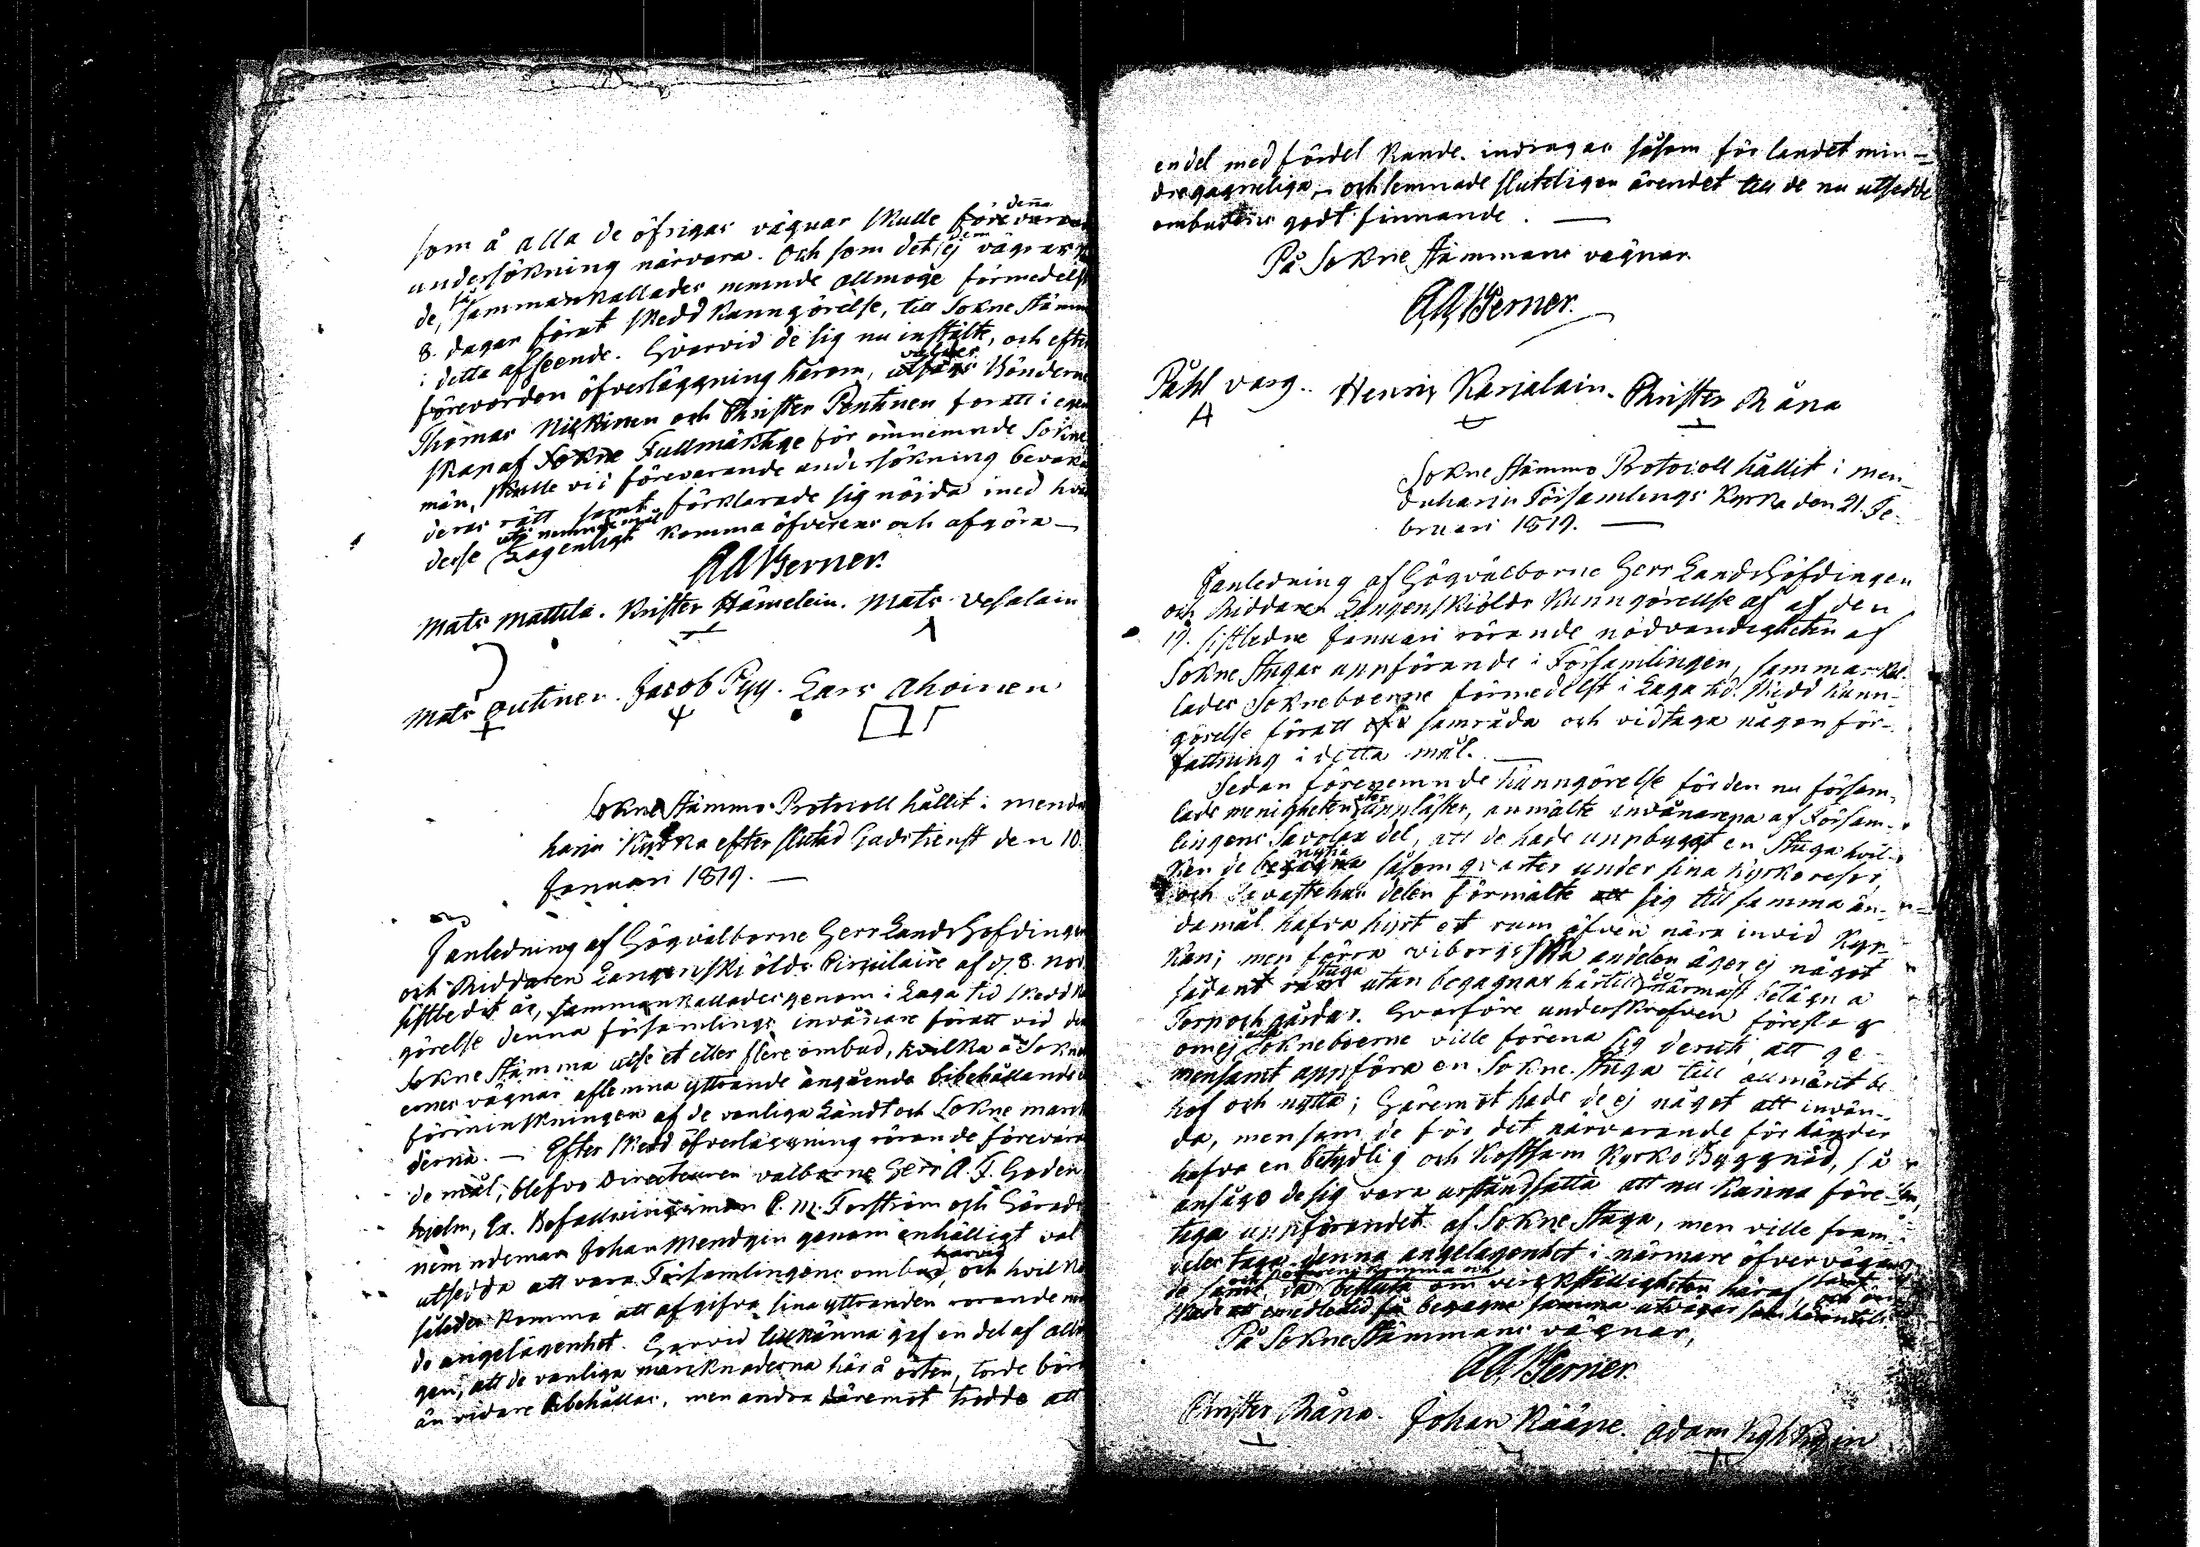 som å alla de öfrigas vägnar skulle före denna
undersökning närvara. Och som det ej dem vägras
de, så sammankallades nemnde allmoge förmedelst
8. dagar förut skedd kunngörelse, till Sokne Stäm
i detta afseende. Hvarvid de sig nu instälte, och efter
förevorden öfverläggning härom, valdes Bönderne
Thomas Nickinen och Christer Pentinen för att i egen
skap af Sokne Fullmäktige för omnemnde Sokne
män, skulle vid förevarande undersökning bevaka
deras rätt samt förklarade sig nöjda med hvad
desse uti nemnde mål Lagenligt komma öfverens och afgöra —
A A Berner.
Mats Mattila. Krister Hämelein. Mats Vesalain
Mats Outinen. Jacob Pyy. Lars Ahoinen
Sokne Stämmo Protocoll hållit i mendu
harju Kyrka efter slutad Gudstienst den 10.
Januari 1819. —
I anledning af Högvälborne Herr Landshöfdingen
och Riddaren Langenskiölds Circulaire af d. 8. nov.
sistledit år, sammankallades genom i Laga tid skedd k
görelse denna församlings invånare föratt vid denna
Sokne Stämma utse et eller flere ombud, hvilka å Sokne
ernes vägnar aflemna yttrande angående bibehållande
förminskningen af de vanliga Landt och Sokne mark
derna. — Efter skedd öfverläggning rörande förevaran
de mål, blefvo Directeuren välborne Herr A. F. Goden
hjelm, Ex. Befallningsman C. M. Forström och Härads
nemndeman Johan Mendyin genom enhälligt val
utsedda att vara Församlingens ombud härvid, och hvilka
således komma att afgifva sina yttranden rörande nemn
de angelägenhet. Härvid tillkänna gaf en del af allmo
gen, att de vanliga marcknaderna här å orten, torde böra
än vidare bibehållas, men andra däremot trodde att
endel med fördel kunde indragas såsom för landet min-
dre gagneliga, och lemnade sluteligen ärendet till de nu utsedde
ombudens godtfinnande. —
På Sokne Stämmans vägnar
A A Berner.
Påhl Varg. Henrik Karjalain. Christer Råna
Sokne Stämmo Protocoll hållit i Men-
duharju Församlings Kyrka den 21. Fe-
bruari 1819. —
I anledning af Högvälborne Herr Landshöfdingen
och Riddaren Langenskiölds kunngörellse af af den
19. sistledne Januari rörande nödvändigheten af
Sokne Stugas uppförande i Församlingen, sammankal-
lades Sokneboerne förmedelst i Laga tid skedd kunn-
görelse föratt samråda och vidtaga någon för-
fattning i detta mål. —
Sedan förenemnde kunngörelse för den nu försam-
lade menigheten uppläster, anmälte invånarena af Försam-
lingens Savolax del, att de hade uppbyggt en Stuga hvil-
ken de nyttia såsom qvarter under sina kyrkoresor,
och Tavastehus delen förmälte sig till samma än-
damål hafva hyrt et rum äfven nära invid Kyr-
kan; men förra viborgsska andelen äger ej något
sådant stuga utan begagnar härtill de närmast belägna
Torp och gårdar. Hvarföre underskrefven föreslog
om ej Sokneboerne ville förena sig deruti att ge-
mensamt uppföra en Sokne Stuga till allmänt be
hof och nytta; Häremot hade de ej något att invän-
da, men som de för det närvarande för händer
hafva en betydlig och kostsam Kyrko Byggnad, så
ansågo de sig vara urståndsatta att nu kunna före-
taga uppförandet af Sokne Stuga, men ville fram-
deles taga denna angelägenhet i närmare öfvervägande
de samt då besluta om verckställigheten häraf, samt
begagna samma utvägar som
På Sokne Stämmans vägnar,
A A Berner.
Christer Råna. Johan Rääpe. Adam